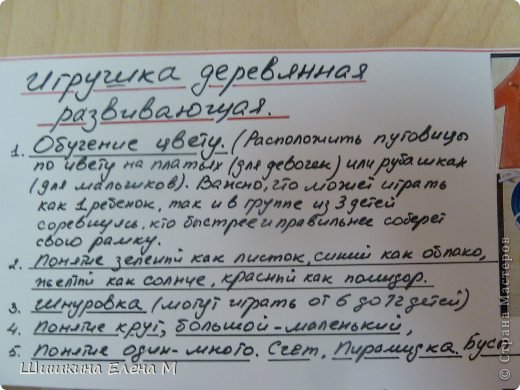 Игрушка деревянная
развивающая.
1. Обучение цвету. (Расположить пуговицы
по цвету на платьях (для девочек) или рубашках
(для мальчиков). Важно, что может играть
как 1 ребенок, так и в группе из 3 детей
соревнуясь, кто быстрее и правильнее соберет
свою рамку.
2. Понятие зелёный как листок, синий как облако,
желтый как солнце, красный как помидор.
3. Шнуровка (могут играть от 6 до 12 детей)
4. Понятие круг, большой-маленький,
5. Понятие один-много. Счёт, Пирамидка. Бусы
Шишкина Елена М
© Страна Мастеров